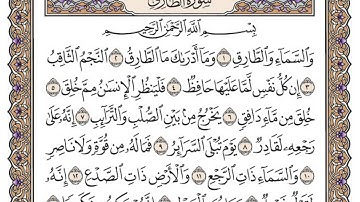 سُورَةُ الطَّارِقِ
بِسْمِ ٱللَّهِ ٱلرَّحْمَٰنِ ٱلرَّحِيمِ
وَٱلسَّمَآءِ وَٱلطَّارِقِ ١ وَمَآ أَدْرَىٰكَ مَا ٱلطَّارِقُ ٢ ٱلنَّجْمُ ٱلثَّاقِبُ
٣ إِن كُلُّ نَفْسٍ لَّمَّا عَلَيْهَا حَافِظٌ ٤ فَلْيَنظُرِ ٱلْإِنسَٰنُ مِمَّ خُلِقَ ٥
خُلِقَ مِن مَّآءٍ دَافِقٍ ٦ يَخْرُجُ مِنۢ بَيْنِ ٱلصُّلْبِ وَٱلتَّرَآئِبِ ٧ إِنَّهُۥ عَلَىٰ
رَجْعِهِۦ لَقَادِرٌ ٨ يَوْمَ تُبْلَى ٱلسَّرَآئِرُ ٩ فَمَا لَهُۥ مِن قُوَّةٍ وَلَا نَاصِرٍ
١٠ وَٱلسَّمَآءِ ذَاتِ ٱلرَّجْعِ ١١ وَٱلْأَرْضِ ذَاتِ ٱلصَّدْعِ ١٢ إِنَّهُۥ